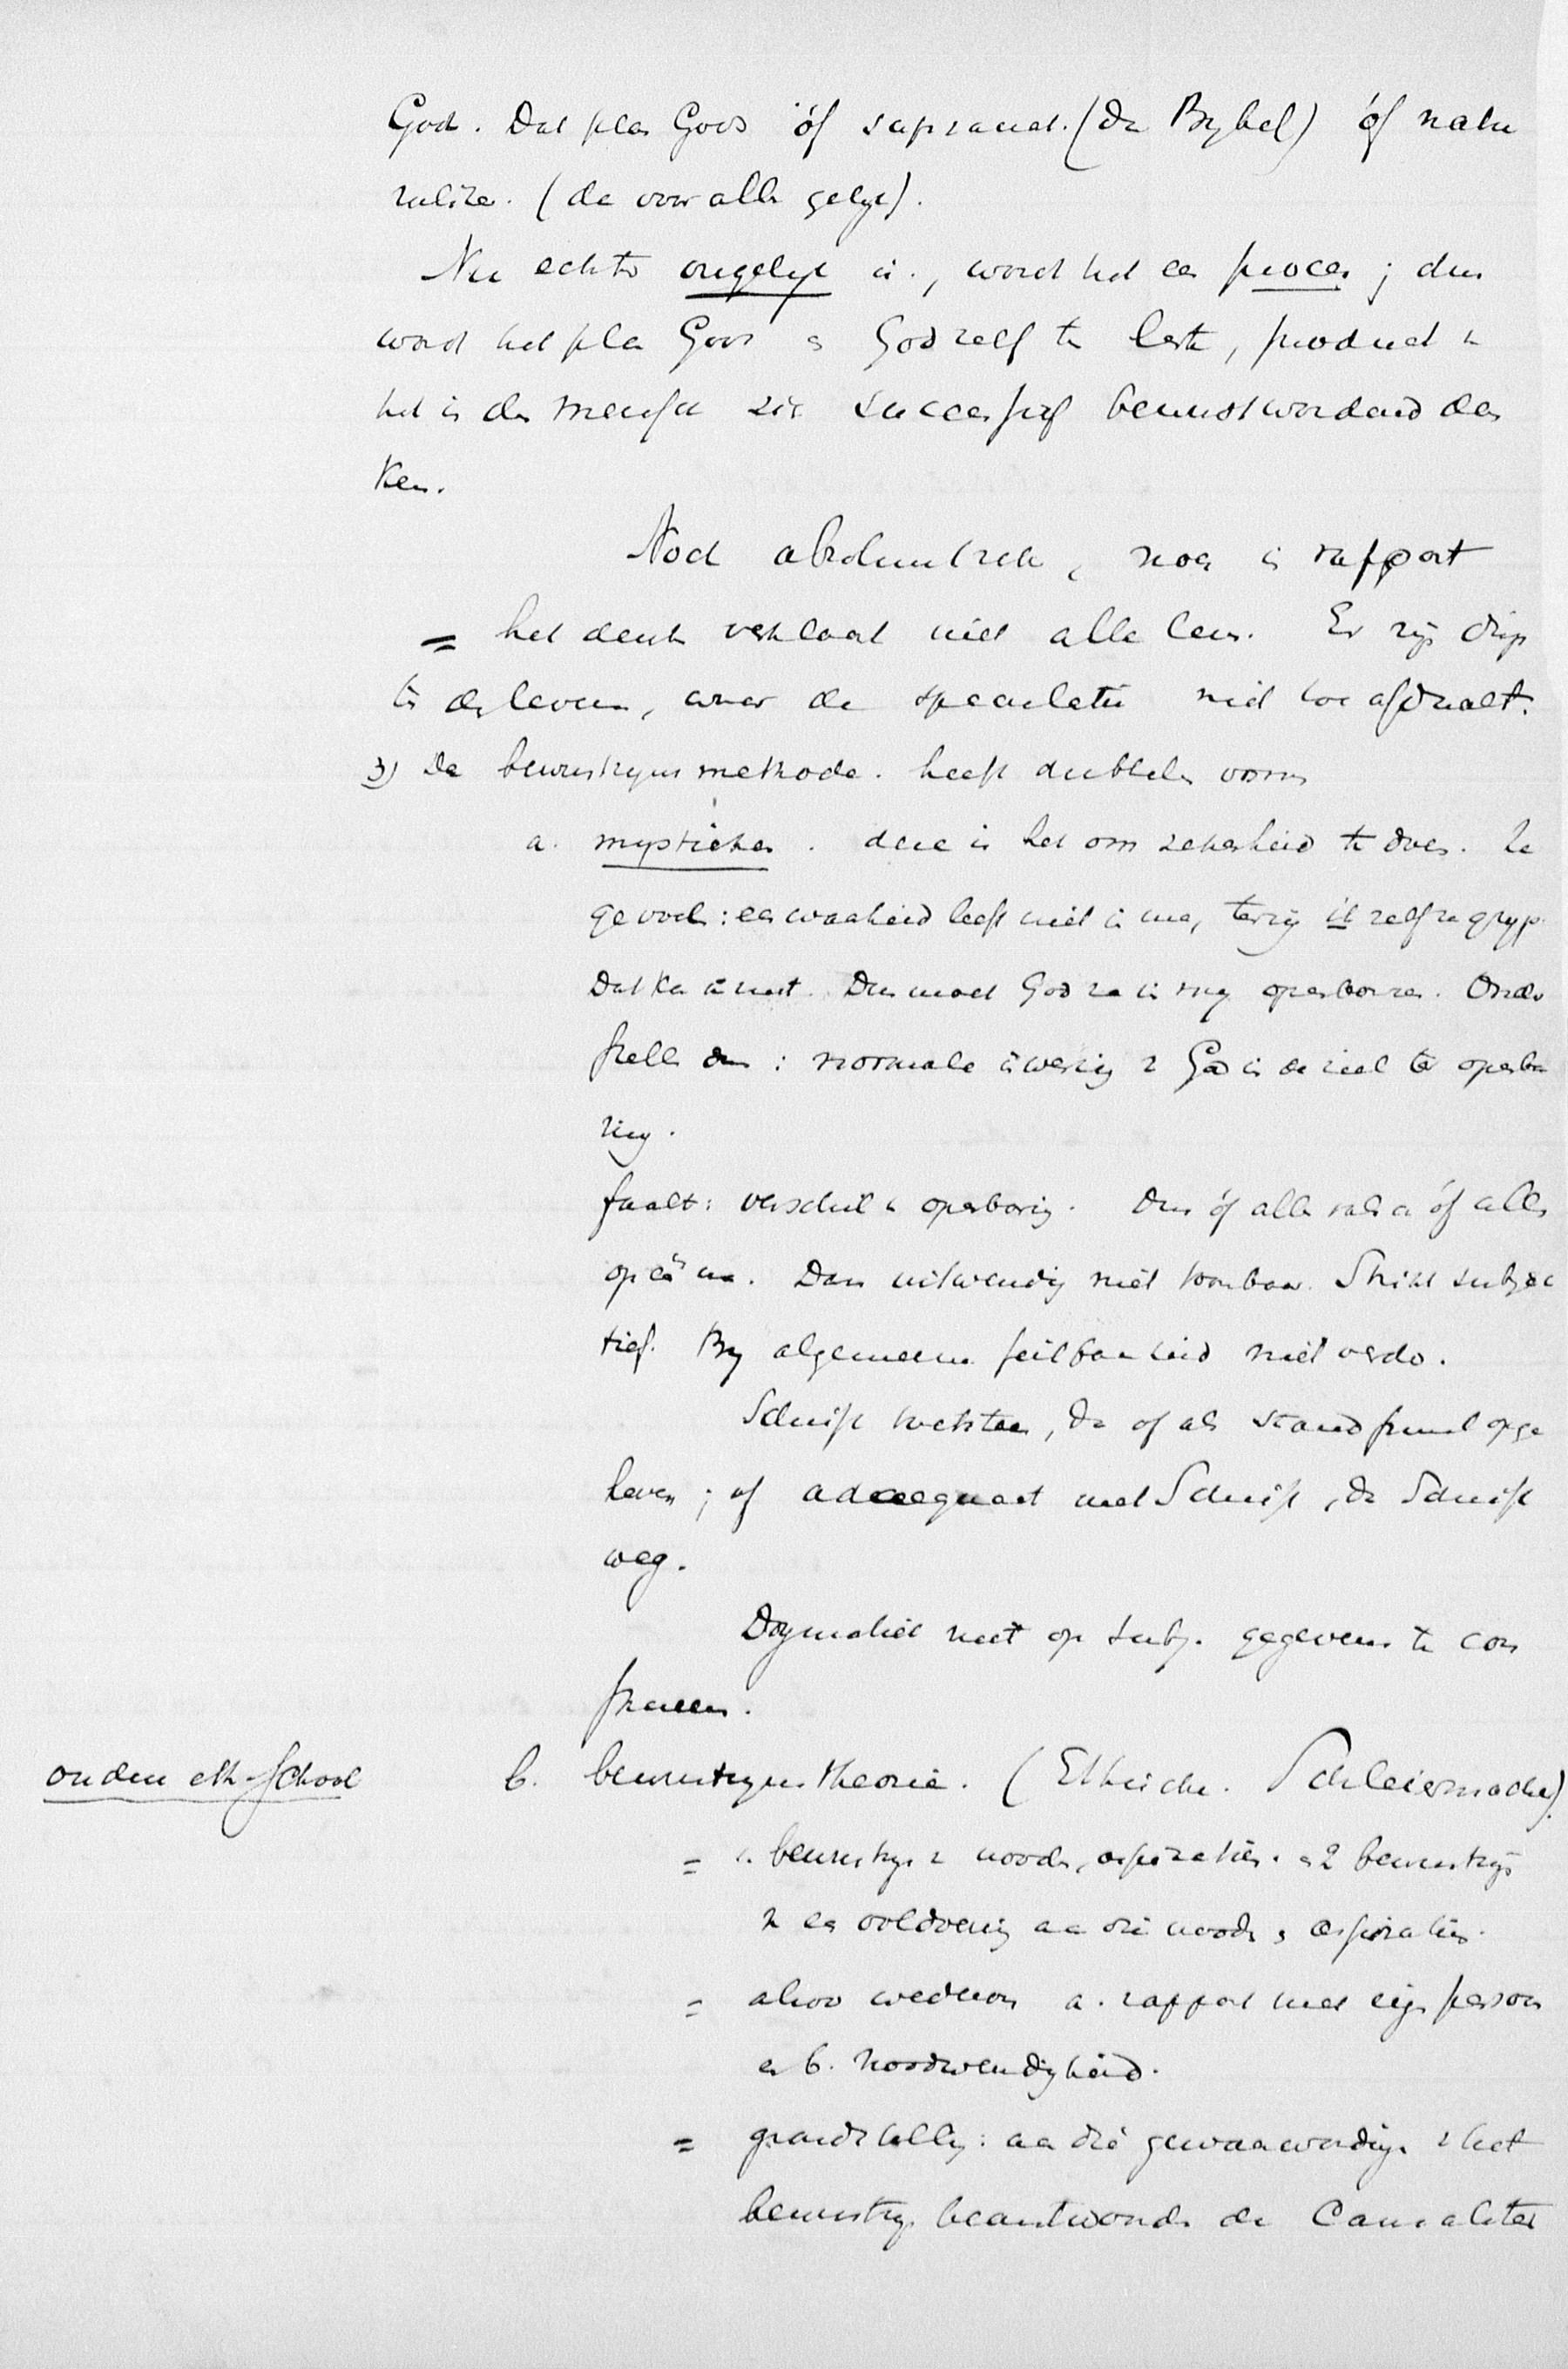 God. Dat plan Gods òf supranat. (dan Bybel) òf natu
ralise. (dan voor allen gelyk).
Nu echter ongelyk is, word het een proces; dus
word het plan Gods en God zelf ten leste, product en
het is den mensch zich successief bewustwordend den
ken.
Noch absoluut zek, noch in rapport
= het denken verklaart niet alle leven. Er zijn dingen
in des levens, waar de speculatie niet toe afdaalt.
3) De bewustzyns methode. heeft dubbelen vorm
a. mystieken. deze is het om zekerheid te doen. Ze
gevoelt: een waarheid leeft niet in me, tenzij ik zelf ze gryp.
Dat kan ik niet. Dus moet God ze in my openbaren. Onder
stelt dus: normale inwerking v God in de ziel ter openba
ring.
faalt: verschil in openbaring. Dus óf alle valsch óf alle
op één na. Dan uitwendig niet toonbaar. Strikt subjec
tief. By algemeene feilbaarheid niet verder.
Schrift toetsteen, dan of als standpunt opge
heven; of adaequaat met Schrift, dan Schrift
weg.
Dogmatiek niet op subj. gegevens te con
strueeren.
onden eth-School
b. bewustzyns theorie. (Ethische. Schleiermacher).
= 1. bewustzyn v nooden, aspiratiën. en 2 bewustzyn
v een voldoening aan die nooden en aspiratiën.
= alzoo wederom a. rapport met eigen persoon
en b. noodwendigheid.
= grondstelling: aan die gewaarwordingen v het
bewustzyn beantwoorden de Causaliteit